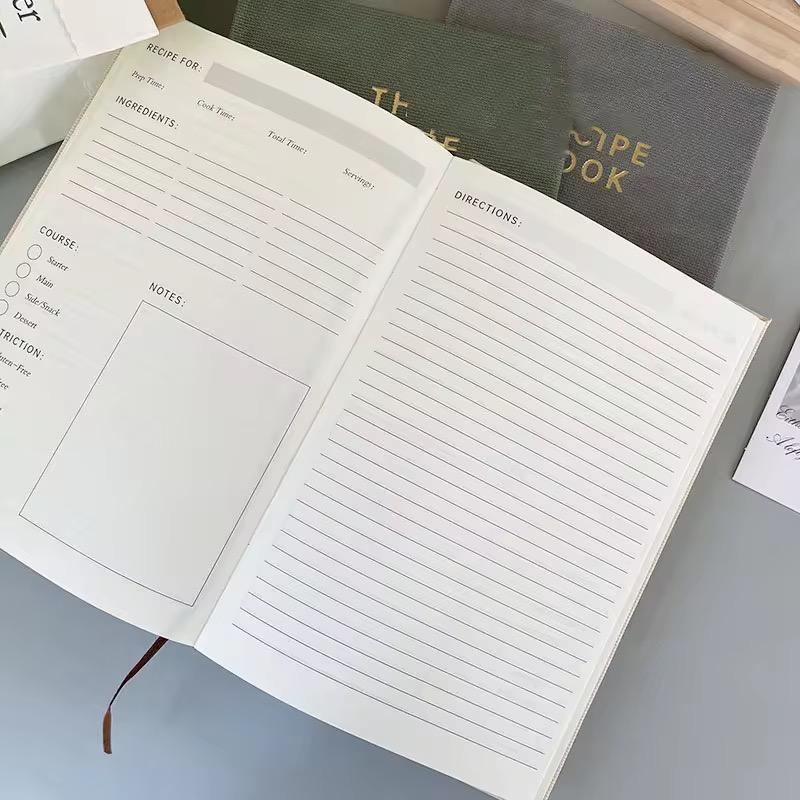 er
TH
IPE
OOK
RECIPE FOR:
Prep Time:
Cook Time:
Total Time:
Servings:
INGREDIENTS:
COURSE:
Starter
Main
Side/Snack
Dessert
TRICTION:
uten-Free
Free
NOTES:
DIRECTIONS:
A